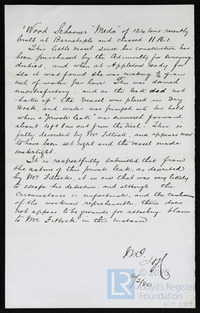 "Wood Schooner "Melia" of 126 tons recently
built at Barnstable and classed A.R.I.
This little vessel since her construction has
been purchased by the Admiralty for surveying
duties, and when at Appledore ready for
Sea it was found she was making 2 of an
inch of water per hour. This was deemed
unsatisfactory, and as the leak did not
"take up" the Vessel was placed in Dry
Dock, and water was pumped into her hold
when a "private leak" was discovered forward
about 18ft and from the Keel. This is
fully described by Mr Fittock, and appears now
to have been set right and the vessel made
watertight.
It is respectfully submitted that from
the nature of this private leak, as described
by Mr Fittock, it is one that was very likely
to escape his detection, and although the
circumstance is unfortunate, and the conduct
of the workmen reprehensible, there does
not appear to be grounds for attaching blame
to Mr Fittock in this instance
Lloyd's Register
Foundation